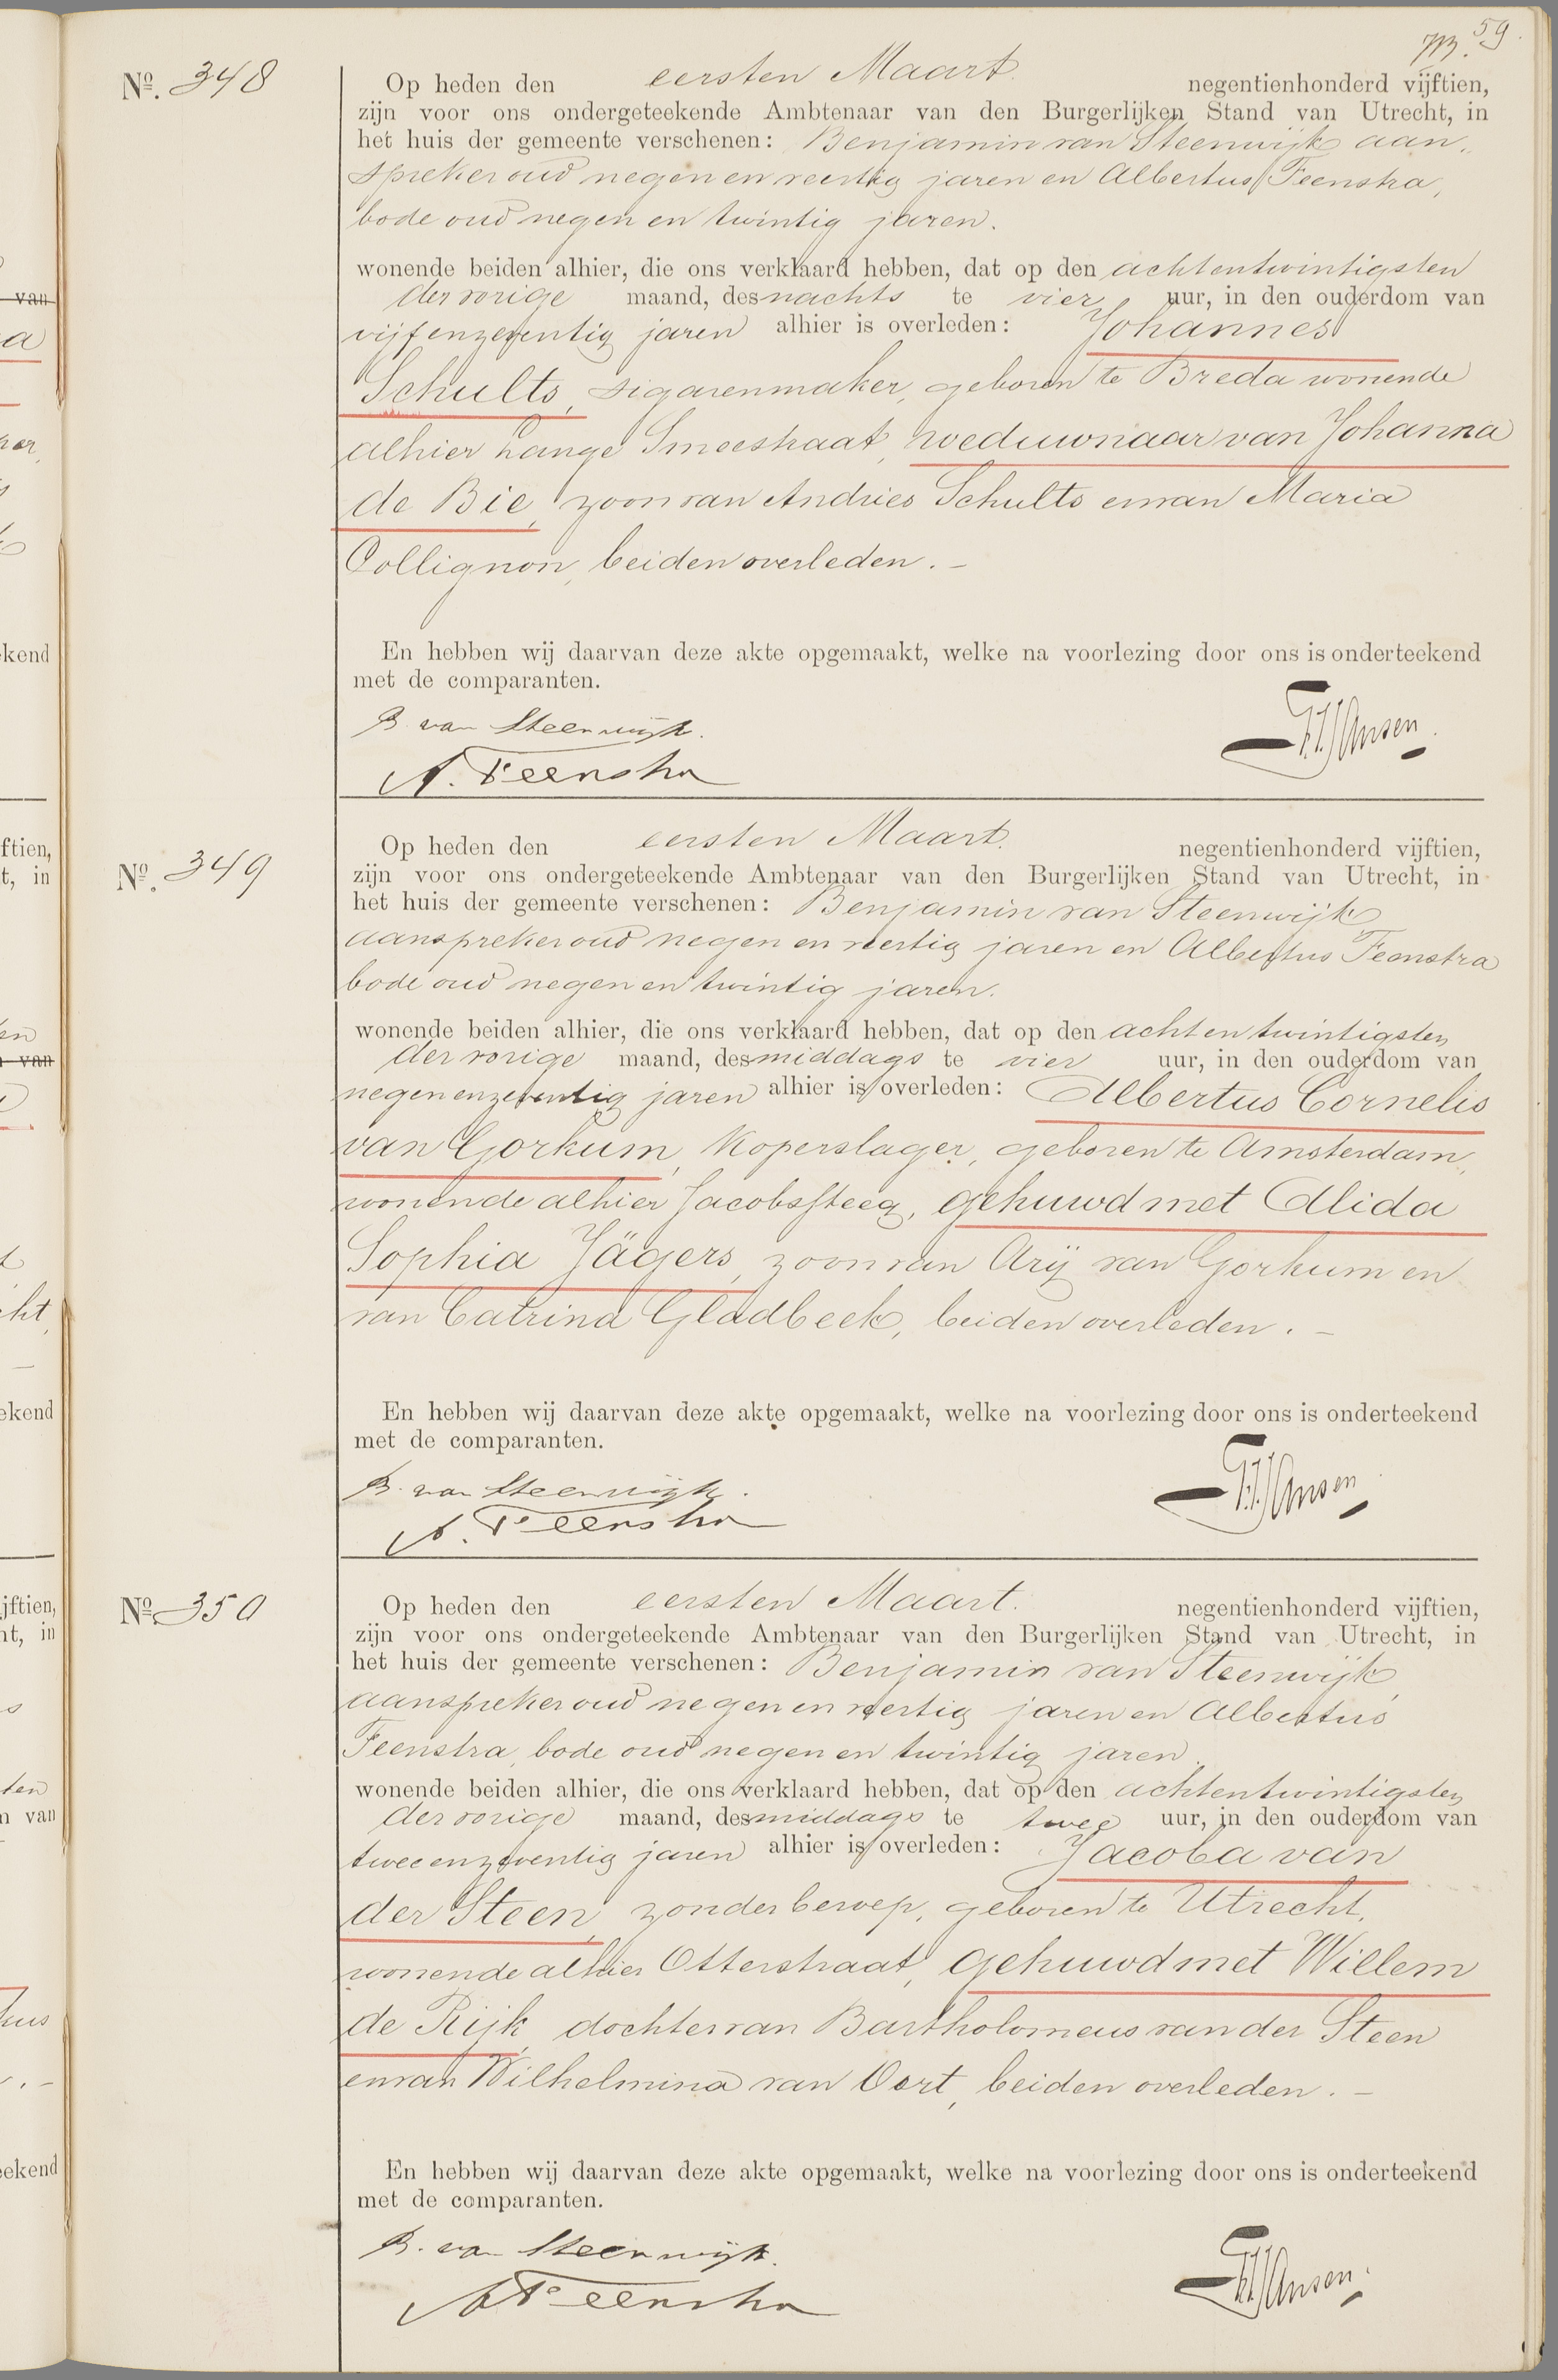 59.
Nº. 348
Op heden den eersten Maart. negentienhonderd vijftien,
zijn voor ons ondergeteekende Ambtenaar van den Burgerlijken Stand van Utrecht, in
het huis der gemeente verschenen: Benjamin van Steenwijk aan-
spreker oud negen en veertig jaren en Albertus Feenstra,
bode oud negen en twintig jaren.
wonende beiden alhier, die ons verklaard hebben, dat op den achtentwintigsten
der vorige maand, des nachts te vier uur, in den ouderdom van
vijfenzeventig jaren alhier is overleden: Johannes
Schults, sigarenmaker, geboren te Breda wonende
alhier Lange Smeestraat, weduwnaar van Johanna
de Bie, zoon van Andries Schults en van Maria
Collignon, beiden overleden. -
En hebben wij daarvan deze akte opgemaakt, welke na voorlezing door ons is onderteekend
met de comparanten.
B. van Steenwijk.
A. Feenstra
Jansen.
Nº. 349
Op heden den eersten Maart. negentienhonderd vijftien,
zijn voor ons ondergeteekende Ambtenaar van den Burgerlijken Stand van Utrecht, in
het huis der gemeente verschenen: Benjamin van Steenwijk
aanspreker oud negen en veertig jaren en Albertus Feenstra
bode oud negen en twintig jaren.
wonende beiden alhier, die ons verklaard hebben, dat op den achtentwintigsten
der vorige maand, des middags te vier uur, in den ouderdom van
negenenzeventig jaren alhier is overleden: Albertus Cornelis
van Gorkum, Koperslager, geboren te Amsterdam,
wonende alhier Jacobssteeg, gehuwd met Alida
Sophia Jägers, zoon van Arij van Gorkum en
van Catrina Gladbeek, beiden overleden. -
En hebben wij daarvan deze akte opgemaakt, welke na voorlezing door ons is onderteekend
met de comparanten.
B. van Steenwijk.
A. Feenstra
Jansen
Nº. 350
Op heden den eersten Maart. negentienhonderd vijftien,
zijn voor ons ondergeteekende Ambtenaar van den Burgerlijken Stand van Utrecht, in
het huis der gemeente verschenen: Benjamin van Steenwijk,
aanspreker oud negen en veertig jaren en Albertus
Feenstra, bode oud negen en twintig jaren.
wonende beiden alhier, die ons verklaard hebben, dat op den achtentwintigsten
der vorige maand, des middags te twee uur, in den ouderdom van
tweeenzeventig jaren alhier is overleden: Jacoba van
der Steen, zonder beroep, geboren te Utrecht,
wonende alhier Otterstraat, gehuwd met Willem
de Rijk, dochter van Bartholomeus van der Steen
en van Wilhelmina van Oort, beiden overleden. -
En hebben wij daarvan deze akte opgemaakt, welke na voorlezing door ons is onderteekend
met de comparanten.
B. van Steenwijk.
A Feenstra
Jansen.